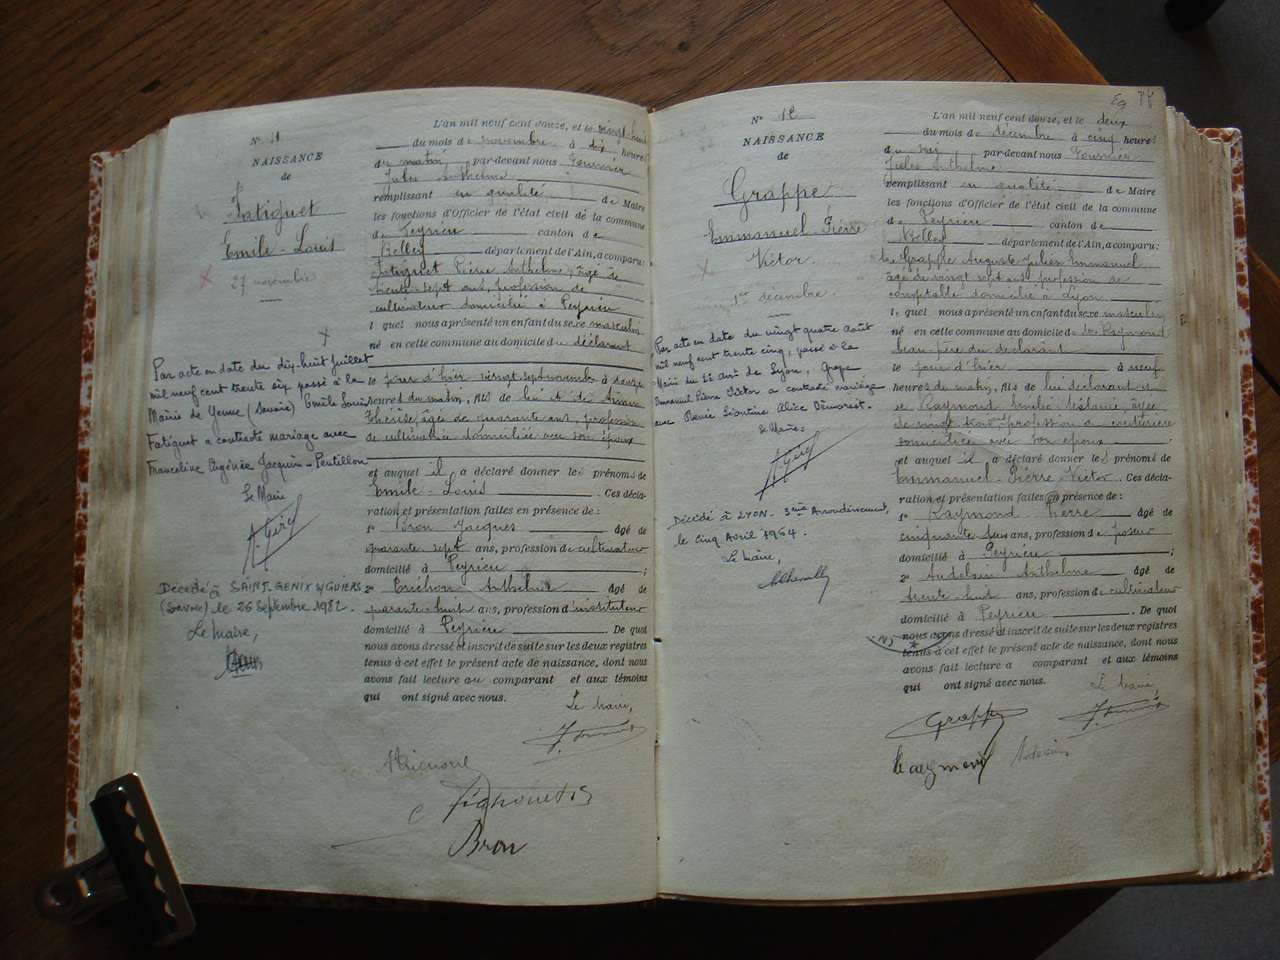 N° 11
NAISSANCE
de
Fatiguet
Emile-Louis
27 novembre
Par acte en date du dix-huit Juillet
mil neuf cent trente six passé à la
Mairie de Yenne (Savoie) Emile Louis
Fatiguet a contracté mariage avec
Franceline Eugénie Jacquin-Pentillon
Le Maire
Décédé à SAINT-GENIX S/GUIERS
(Savoie) le 26 Septembre 1982.
Le Maire,
L'an mil neuf cent douze, et le vingt huit
du mois de novembre à dix heures
du matin, par-devant nous Fournier
Jules Anthelme
remplissant en qualité de Maire
les fonctions d'Officier de l'état civil de la commune
de Peyrieu canton de
Belley département de l'Ain, a comparu:
Fatiguet Pierre Anthelme, âgé de
trente-sept ans, profession de
cultivateur domicilié à Peyrieu
lequel nous a présenté un enfant du sexe masculin
né en cette commune au domicile du déclarant
le jour d'hier vingt-sept novembre à douze
heures du matin, fils de lui et de
Thérèse, âgée de quarante ans, profession
de cultivatrice domiciliée avec son époux
et auquel il a déclaré donner les prénoms de
Emile-Louis. Ces décla-
ration et présentation faites en présence de:
1° Bron Jacques âgé de
quarante sept ans, profession de cultivateur
domicilié à Peyrieu;
2° Anthelme âgé de
quarante-huit ans, profession d'instituteur
domicilié à Peyrieu. De quoi
nous avons dressé et inscrit de suite sur les deux registres
tenus à cet effet le présent acte de naissance, dont nous
avons fait lecture au comparant et aux témoins
qui ont signé avec nous.
Le Maire,
Bron
N° 12
NAISSANCE
de
Grappe
Emmanuel Pierre
Victor.
1er décembre.
Par acte en date du vingt quatre Août
mil neuf cent trente cinq, passé à la
Mairie du Arrt de Lyon, Grappe
Emmanuel Pierre Victor a contracté mariage
avec Léontine Alice Démorest.
Le Maire:
Décédé à LYON - 3ème Arrondissement,
le cinq Avril 1964.
Le Maire,
L'an mil neuf cent douze, et le deux
du mois de décembre à cinq heures
du soir, par-devant nous Fournier
Jules Anthelme
remplissant en qualité de Maire
les fonctions d'Officier de l'état civil de la commune
de Peyrieu canton de
Belley département de l'Ain, a comparu:
Grappe Auguste Julien Emmanuel
âgé de vingt sept ans profession de
comptable domicilié à Lyon
lequel nous a présenté un enfant du sexe masculin
né en cette commune au domicile de Raymond
beau-père du déclarant
le jour d'hier à neuf
heures du matin, fils de lui déclarant et
de Raymond Emélie Mélanie, âgée
de vingt trois ans profession de couturière
domiciliée avec son époux;
et auquel il a déclaré donner les prénoms de
Emmanuel-Pierre-Victor. Ces décla-
ration et présentation faites en présence de:
1° Raymond Pierre âgé de
cinquante ans, profession de poseur
domicilié à Peyrieu;
2° Anthelme âgé de
trente huit ans, profession de cultivateur
domicilié à Peyrieu. De quoi
nous avons dressé et inscrit de suite sur les deux registres
tenus à cet effet le présent acte de naissance, dont nous
avons fait lecture a comparant et aux témoins
qui ont signé avec nous.
Le Maire,
Grappe
Raymond